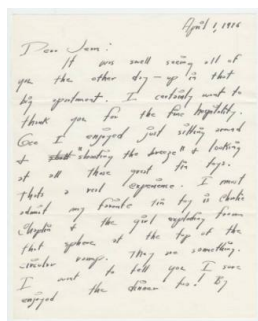 April 1, 1986
Dear Jam:
It was swell seeing all of
you the other day - up in that
big apartment. I certainly want to
thank you for the fine hospitality.
Gee I enjoyed just sitting around
+ "shooting the breeze" + looking
at all those great tin toys.
Thats a real experience. I must
admit my favorite tin toy is Charlie
Chaplin + the girl exploding from
that sphere at the top of the
circular ramp. They are something.
I want to tell you I sure
enjoyed the dinner too! By